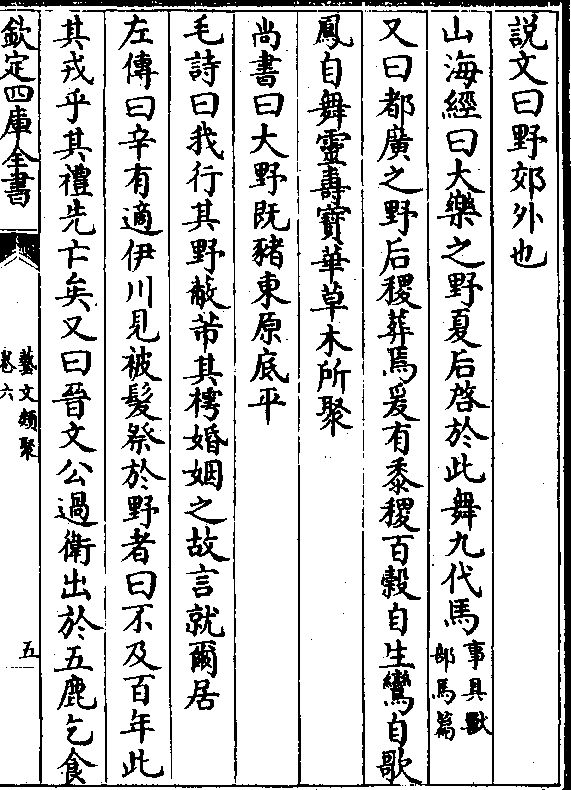 説文曰野郊外也
山海經曰大樂之野夏后啓於此舞九代馬事具獸部馬篇
又曰都廣之野后稷葬焉爰有黍稷百穀自生鸞自歌
鳳自舞靈壽寶華草木所聚
尚書曰大野既豬東原底平
毛詩曰我行其野蔽芾其樗婚姻之故言就爾居
左傳曰辛有適伊川見被髮祭於野者曰不及百年此
其戎乎其禮先亡矣又曰晉文公過衛出於五鹿乞食
欽定四庫全書
藝文類聚
卷六
五